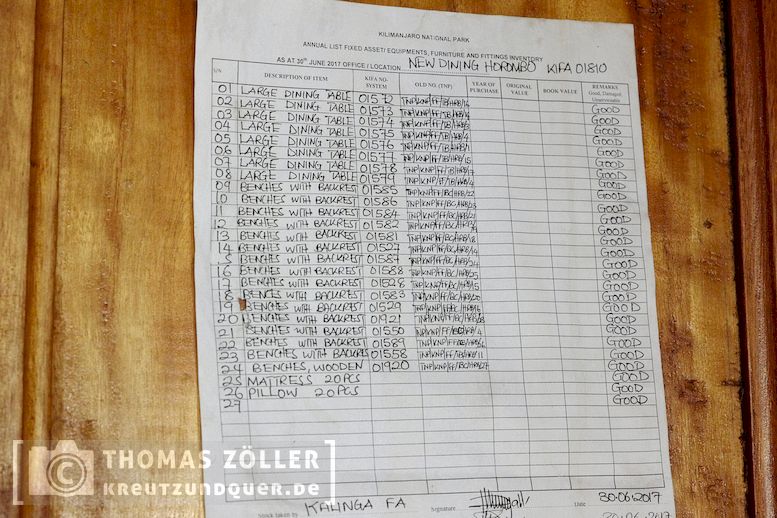 KILIMANJARO NATIONAL PARK
ANNUAL LIST FIXED ASSET/ EQUIPMENTS, FURNITURE AND FITTINGS INVENTORY
AS AT 30th JUNE 2017 OFFICE / LOCATION NEW DINING HOROMBO KIFA 01810
S/N DESCRIPTION OF ITEM KIFA NO- SYSTEM OLD NO. (TNP) YEAR OF PURCHASE ORIGINAL VALUE BOOK VALUE REMARKS Good, Damaged Unserviceable
01 LARGE DINING TABLE 01572 GOOD
02 LARGE DINING TABLE 01573 GOOD
03 LARGE DINING TABLE 01574 GOOD
04 LARGE DINING TABLE 01575 GOOD
05 LARGE DINING TABLE 01576 GOOD
06 LARGE DINING TABLE 01577 GOOD
07 LARGE DINING TABLE 01578 GOOD
08 LARGE DINING TABLE 01579 GOOD
09 BENCHES WITH BACKREST 01585 GOOD
10 BENCHES WITH BACKREST 01586 GOOD
11 BENCHES WITH BACKREST 01584 GOOD
12 BENCHES WITH BACKREST 01582 GOOD
13 BENCHES WITH BACKREST 01581 GOOD
14 BENCHES WITH BACKREST 01527 GOOD
5 BENCHES WITH BACKREST 01587 GOOD
16 BENCHES WITH BACKREST 01588 GOOD
17 BENCHES WITH BACKREST 01528 GOOD
18 BENCES WITH BACKREST 01583 GOOD
19 BENCHES WITH BACKREST 01529 GOOD
20 BENCHES WITH BACKREST 01921 GOOD
21 BENCHES WITH BACKREST 01550 GOOD
22 BENCHES WITH BACKREST 01589 GOOD
23 BENCHES WITH BACKREST 01558 GOOD
24 BENCHES, WOODEN 01920 GOOD
25 MATTRESS 20 PCS GOOD
26 PILLOW 20 PCS GOOD
27 GOOD
Stock taken by KALINGA FA Signature Date 30.06.2017
30.06.2017
© THOMAS ZÖLLER
KREUTZUNDQUER.DE